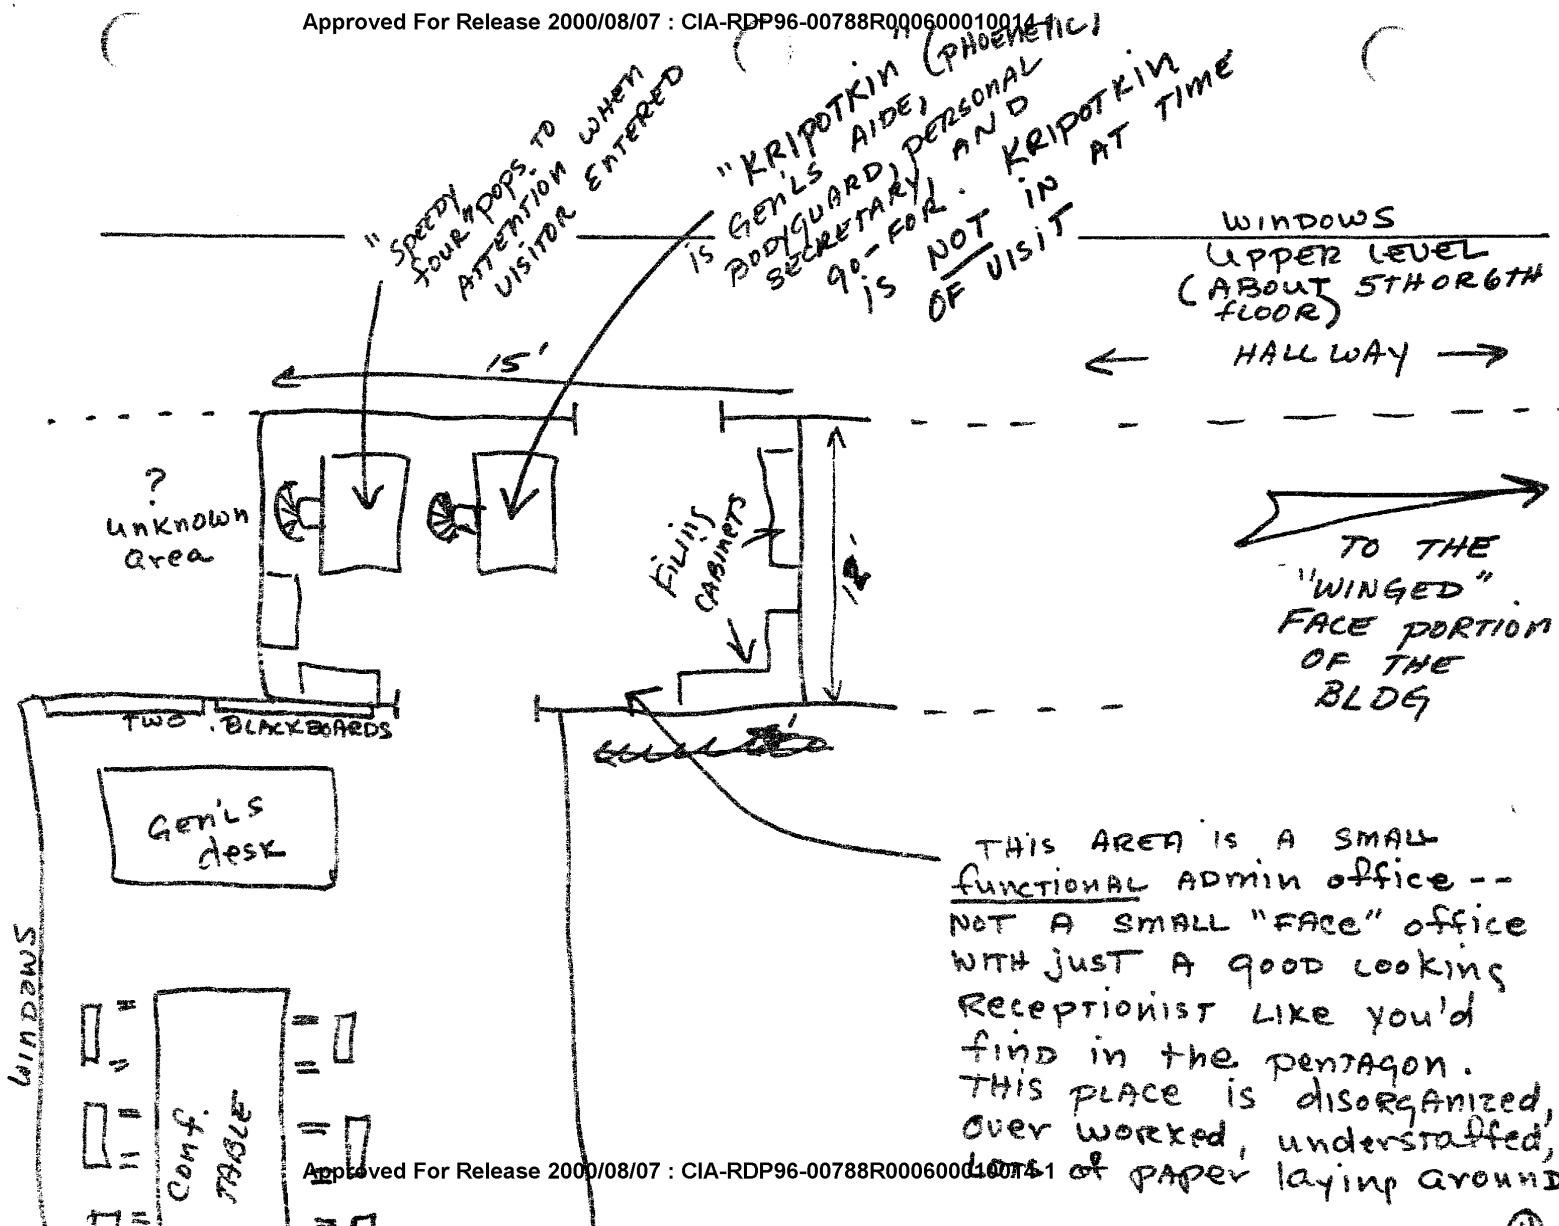 Approved For Release 2000/08/07 : CIA-RDP96-00788R000600010014-1
"SPEEDY
FOUR" POPS TO
ATTENTION WHEN
VISITOR ENTERED
"KRIPOTKIN" (PHOENETIC)
is GEN'LS AIDE,
BODYGUARD, PERSONAL
SECRETARY, AND
go-FOR. KRIPOTKIN
is NOT IN AT TIME
OF VISIT
WINDOWS
UPPER LEVEL
(ABOUT 5TH OR 6TH
FLOOR)
HALLWAY
15'
?
unknown
area
FiLiNg
CABINETS
12'
TO THE
"WINGED"
FACE PORTION
OF THE
BLDG
TWO BLACKBOARDS
GEN'LS
desk
THIS AREA IS A SMALL
functionAL ADmin office --
NOT A SMALL "FACE" office
WITH JUST A GOOD LOOKING
Receptionist LIKE you'd
find in the pentagon.
THIS PLACE is disorganized,
over worked, understaffed,
LOTS of PAPER laying around
WINDOWS
Conf.
TABLE
Approved For Release 2000/08/07 : CIA-RDP96-00788R000600010014-1